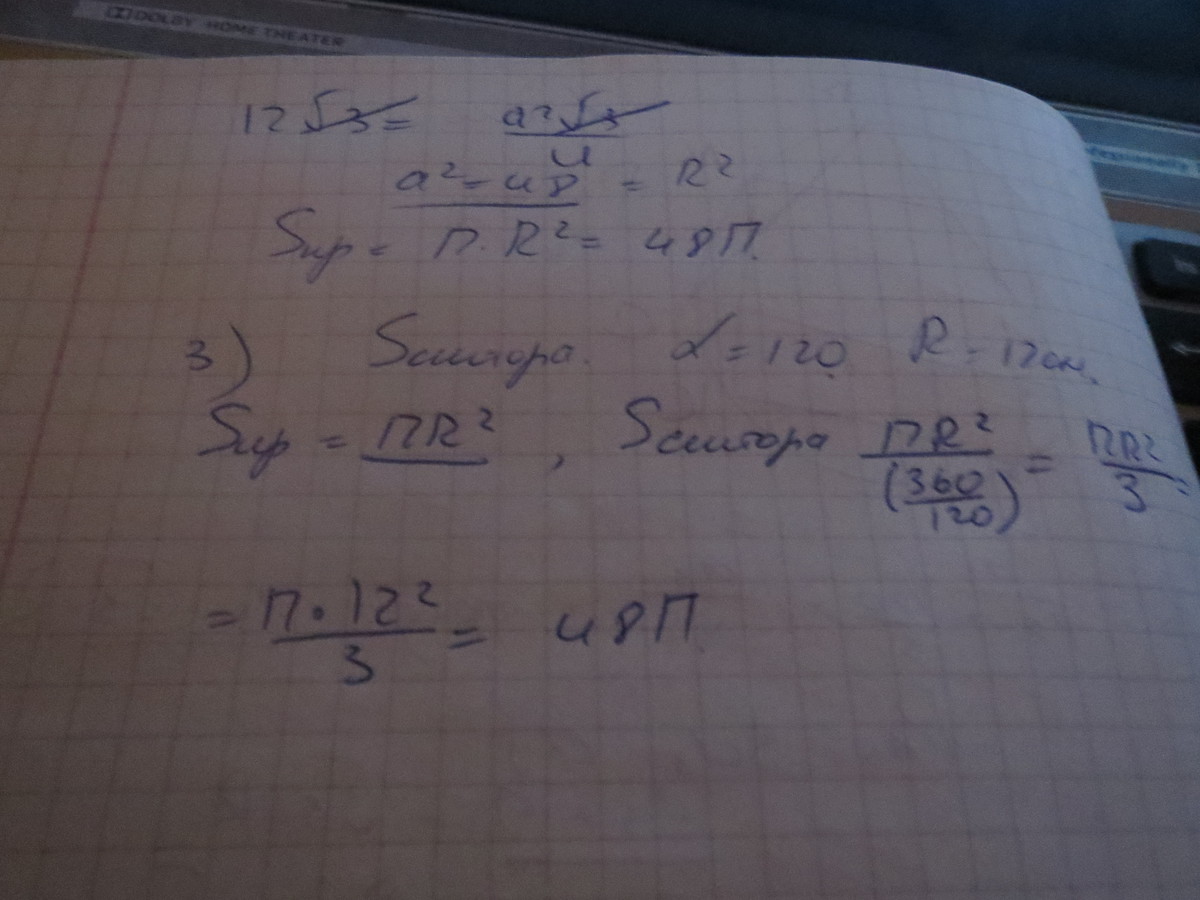 DOLBY HOME THEATER
12√3 = a²√3/4
a² = 48 = R²
Sкр = П·R² = 48П.
3) Sсектора. α = 120 R = 12см.
Sкр = ПR², Sсектора ПR²/(360/120) = ПR²/3 =
= П·12²/3 = 48П